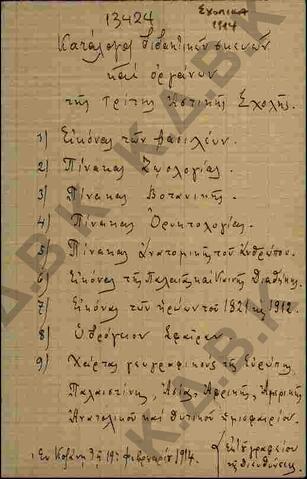 13424
ΣΧΟΛΙΚΑ
1914
Κατάλογος διδακτικῶν σκευῶν
καὶ ὀργάνων
τῆς τρίτης Ἀστικῆς Σχολῆς.
1) Εἰκόνες τῶν βασιλέων.
2) Πίνακας Ζῳολογίας.
3) Πίνακας Βοτανικῆς.
4) Πίνακας Ὀρυκτολογίας.
5) Πίνακας Ἀνατομικῆς τοῦ ἀνθρώπου.
6) Εἰκόνες τῆς Παλαιᾶς καὶ Καινῆς Διαθήκης.
7) Εἰκόνας τῶν ἡρώων τοῦ 1821 κ 1912.
8) Ὑδρόγειον Σφαῖραν.
9) Χάρτας γεωγραφικοὺς τῆς Εὐρώπης,
Παλαιστίνης, Ἀσίας, Ἀφρικῆς, Ἀμερικῆς
Ἀνατολικοῦ καὶ δυτικοῦ ἡμισφαιρίου.
Ἐν Κοζάνῃ τῇ 19ῃ Φεβρουαρίου 1914.
Ἐκ τοῦ γραφείου
τῆς διευθύνσεως
Κ.Δ.Β.Κ